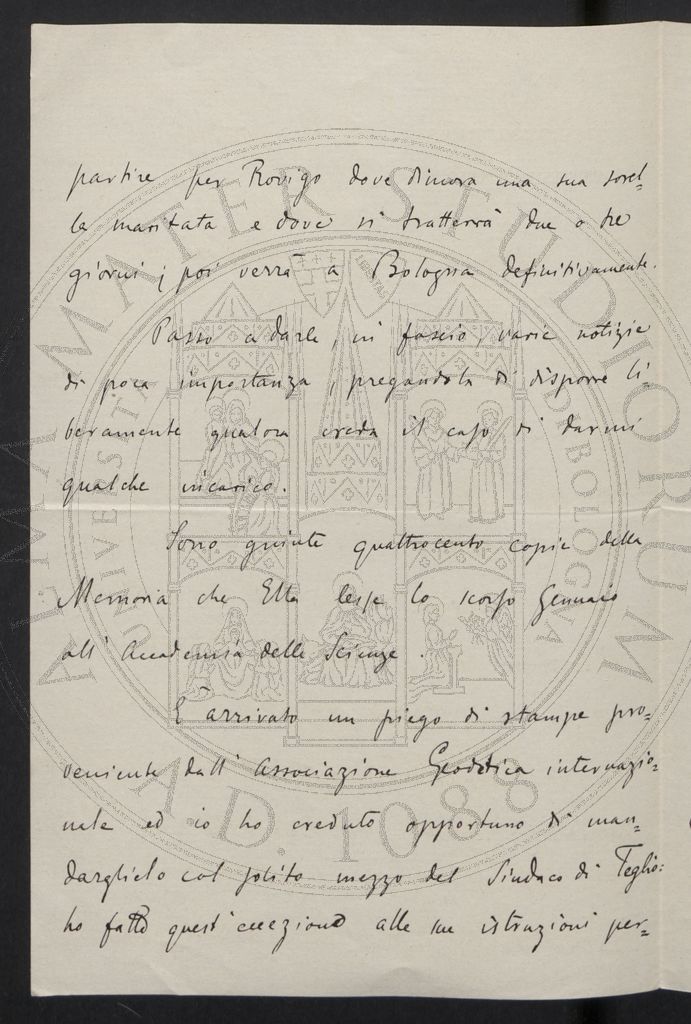 partire per Rovigo dove dimora una sua sorel=
la maritata e dove si tratterrà due o tre
giorni; poi verrà a Bologna definitivamente.
Passo a darle, in fascio, varie notizie
di poca importanza, pregandola di disporre li=
beramente qualora creda il caso di darmi
qualche incarico.
Sono giunte quattrocento copie della
Memoria che Ella lesse lo scorso Gennaio
all'Accademia delle Scienze.
È arrivato un piego di stampe pro=
veniente dall'Associazione Geodetica internazio=
nale ed io ho creduto opportuno di man=
darglielo col solito mezzo del Sindaco di Teglio:
ho fatto quest'eccezione alle sue istruzioni per=
ALMA MATER STUDIORUM
UNIVERSITÀ DI BOLOGNA
A.D. 1088